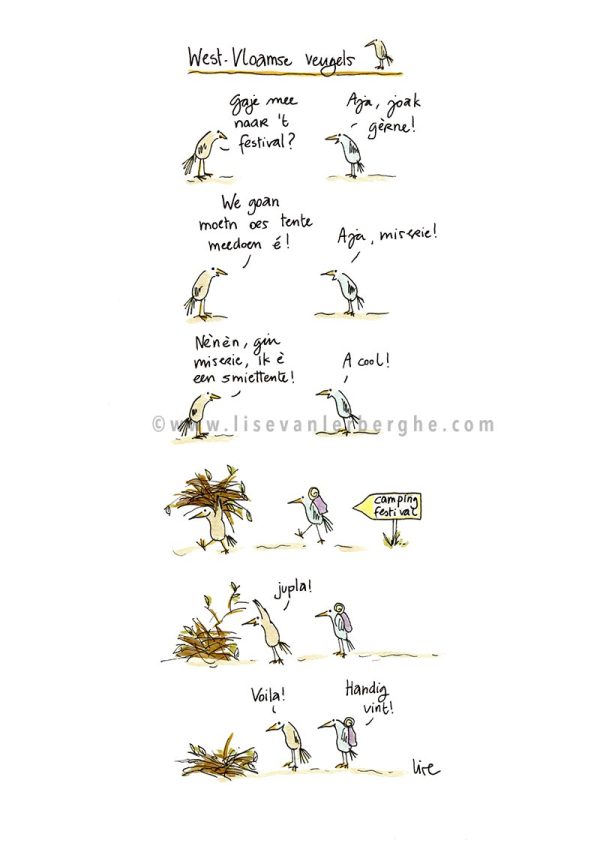 West-Vloamse veugels
Goje mee
naar 't
festival?
Aja, joak
gèrne!
We goan
moetn oes tente
meedoen é!
Aja, miserie!
Nènèn, gin
miserie, ik è
een smiettente!
A cool!
©www.lisevanlerberghe.com
camping
festival
jupla!
Voila!
Handig
vint!
lise